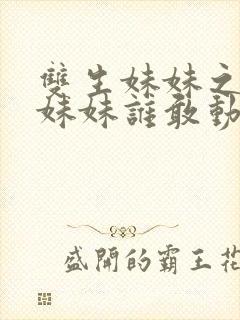 雙生妹妹之
妹妹誰敢動
盛開的霸王花